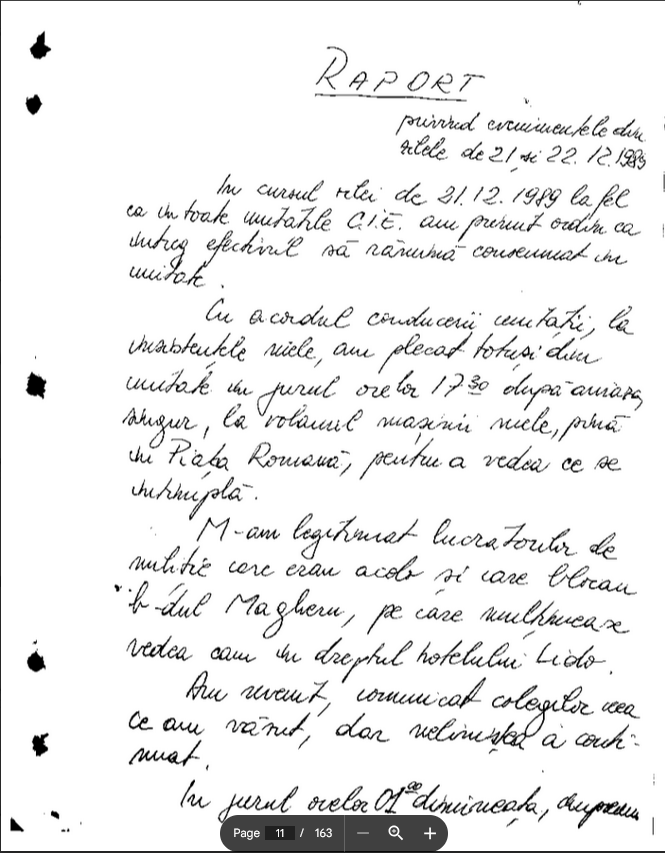 RAPORT
privind evenimentele din
zilele de 21 și 22.12.1989
In cursul zilei de 21.12.1989 la fel
ca in toate unitățile C.I.E. am primit ordin ca
intreg efectivul să rămînă consemnat in
unitate.
Cu acordul conducerii unității, la
insistențele mele, am plecat totuși din
unitate in jurul orelor 17³⁰ după amiaza,
singur, la volanul mașinii mele, pînă
in Piața Romană, pentru a vedea ce se
intîmplă.
M-am legitimat lucratorilor de
miliție care erau acolo și care blocau
b-dul Magheru, pe care mulțimea se
vedea cam in dreptul hotelului Lido.
Am revenit, comunicat colegilor ceea
ce am văzut, dar neliniștea a conti-
nuat.
In jurul orelor 01⁰⁰ dimineața, impreună
Page 11 / 163